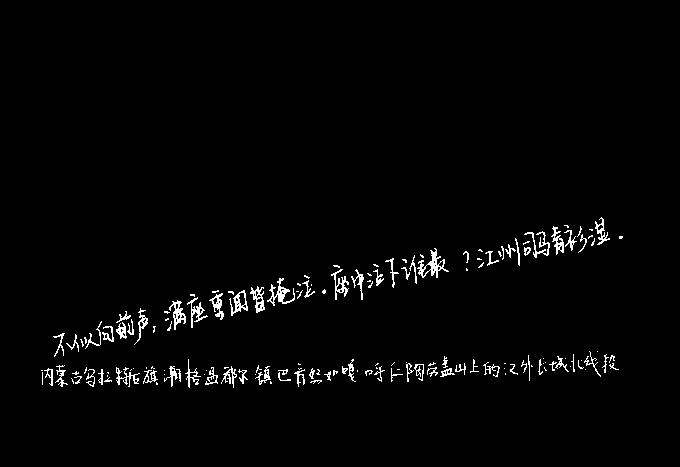 不似向前声，满座重闻皆掩泣。座中泣下谁最？江州司马青衫湿．
内蒙古乌拉特后旗潮格温都尔镇巴音努如嘎查呼仁陶勒盖山上的汉外长城北线段